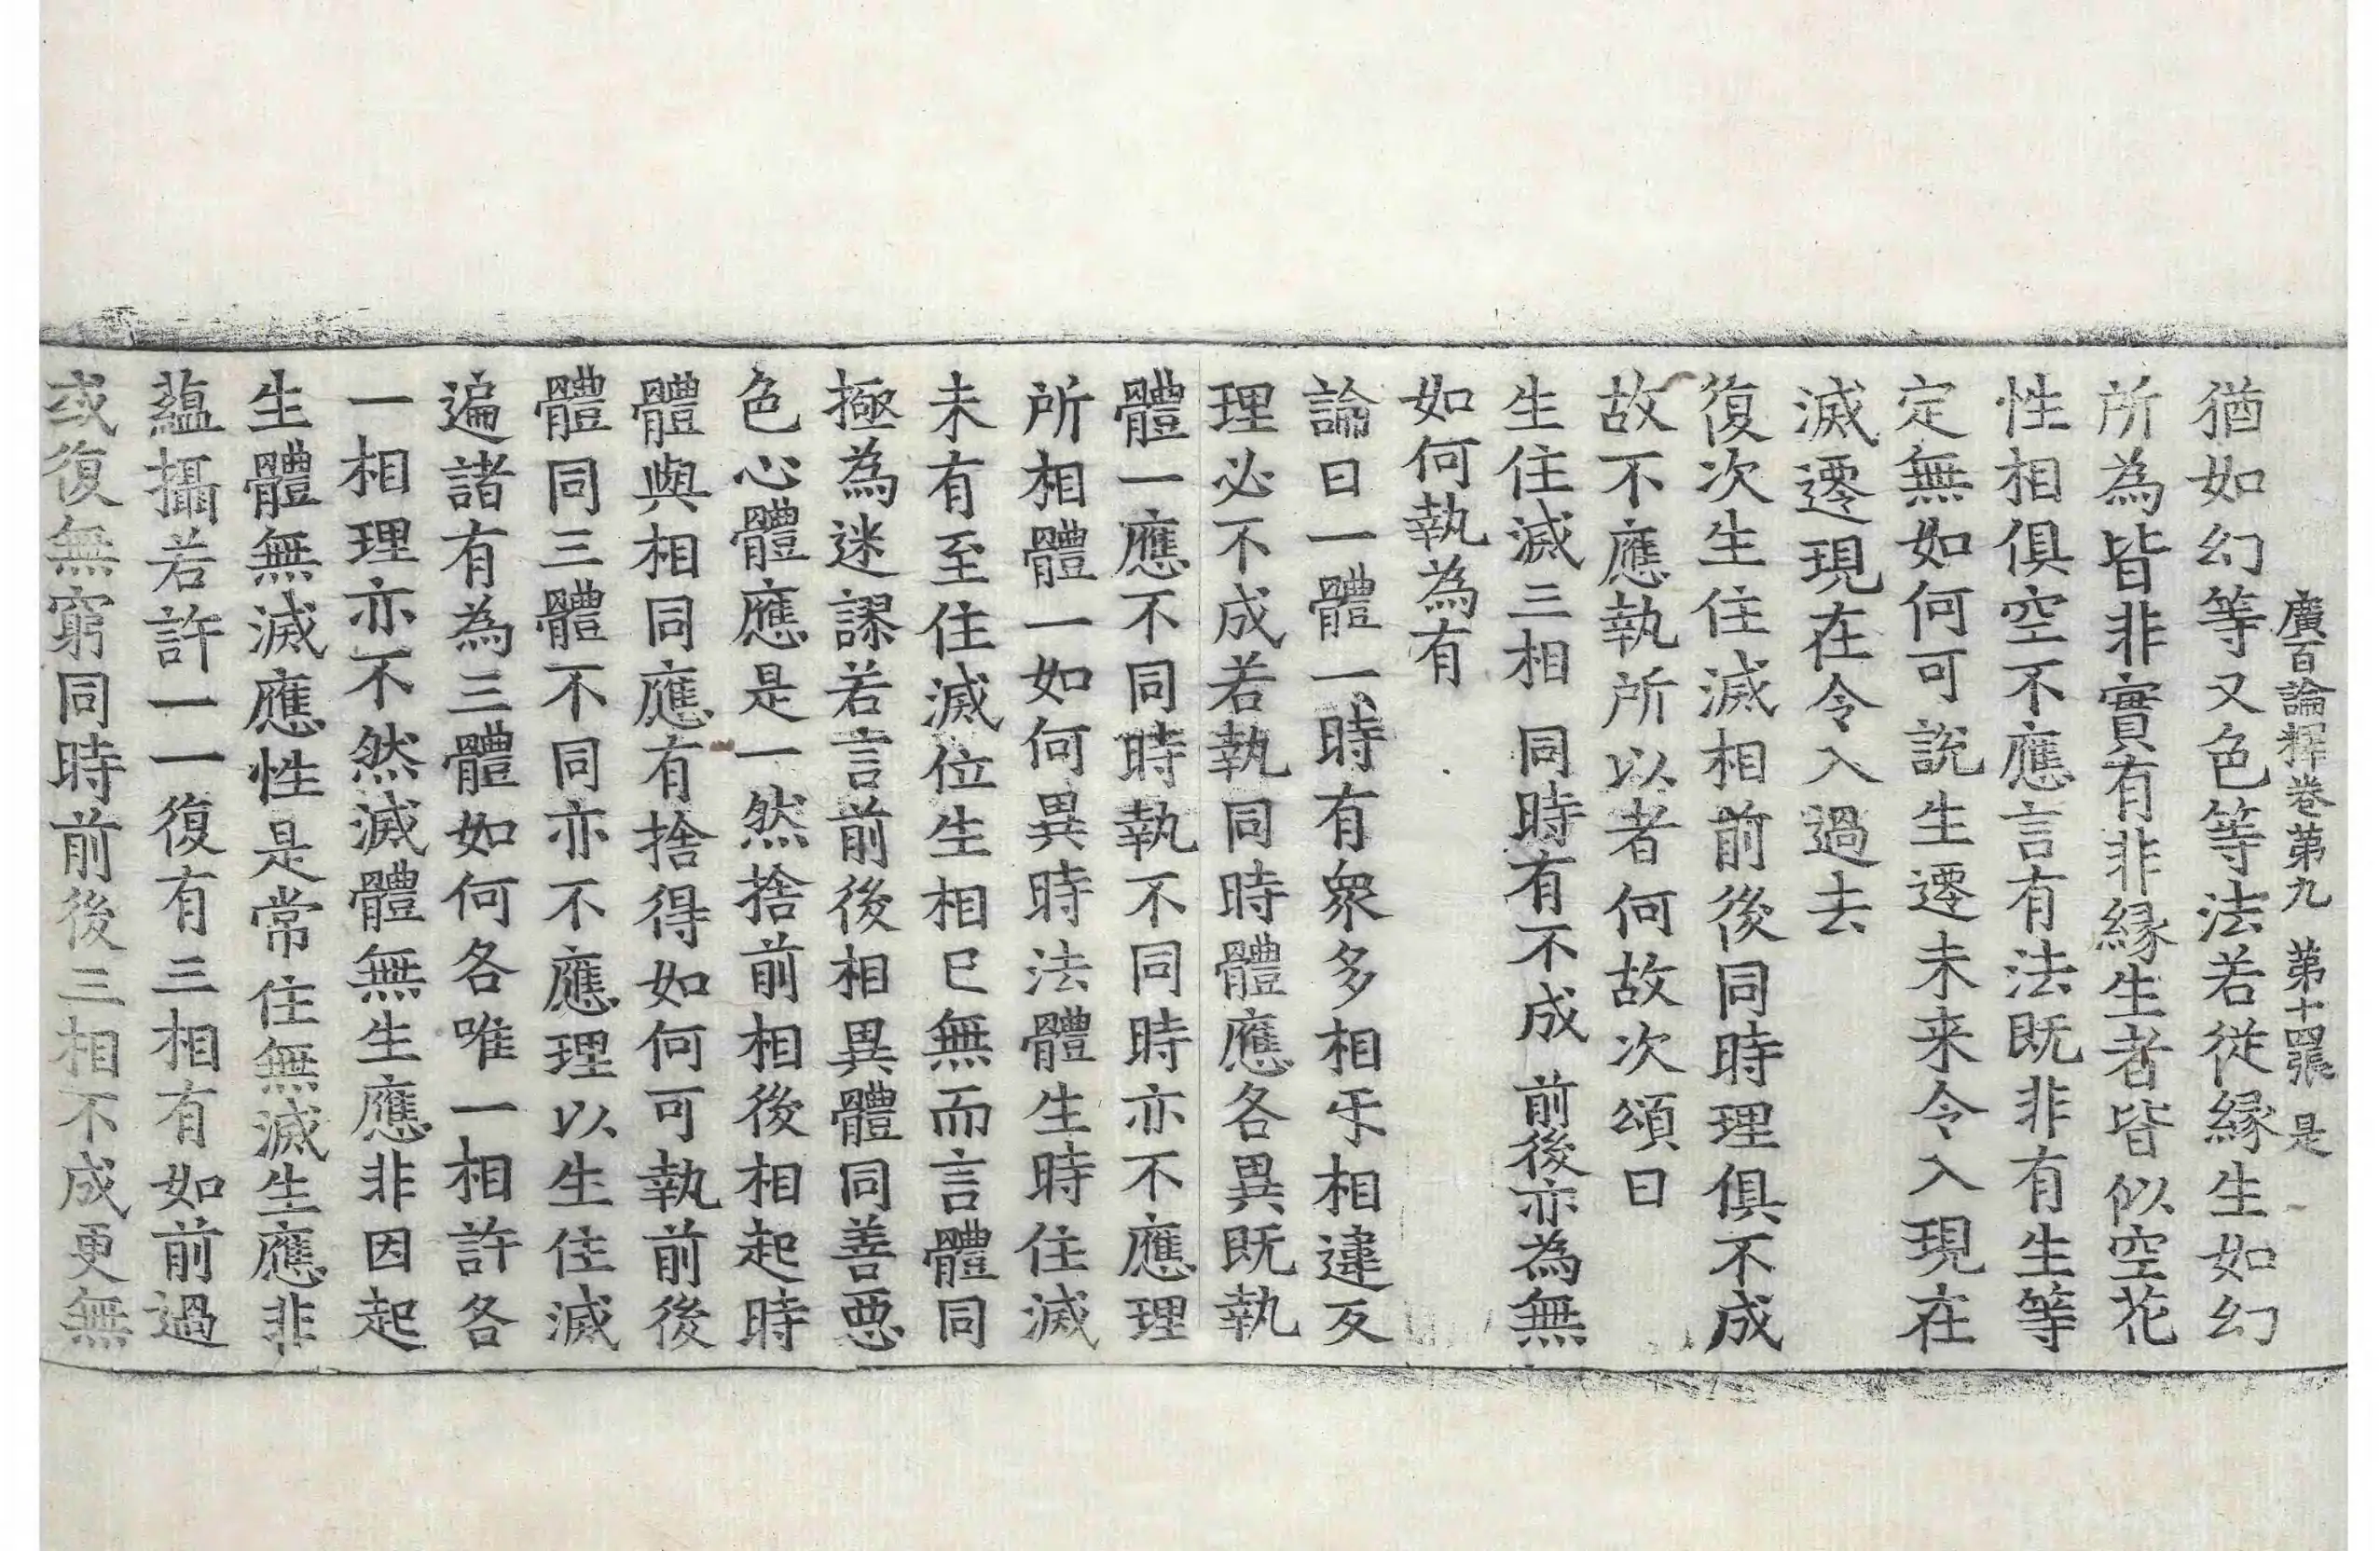 廣百論釋卷第九　第十四張　是
猶如幻等又色等法若從緣生如幻
所為皆非實有非緣生者皆似空花
性相俱空不應言有法既非有生等
定無如何可說生遷未来令入現在
滅遷現在令入過去
復次生住滅相前後同時理俱不成
故不應執所以者何故次頌曰
生住滅三相　同時有不成　前後亦為無
如何執為有
論曰一體一時有衆多相乎相違反
理必不成若執同時體應各異既執
體一應不同時執不同時亦不應理
所相體一如何異時法體生時住滅
未有至住滅位生相已無而言體同
極為迷謬若言前後相異體同善惡
色心體應是一然捨前相後相起時
體與相同應有捨得如何可執前後
體同三體不同亦不應理以生住滅
遍諸有為三體如何各唯一相許各
一相理亦不然滅體無生應非因起
生體無滅應性是常住無滅生應非
蘊攝若許一一復有三相有如前過
或復無窮同時前後三相不成更無